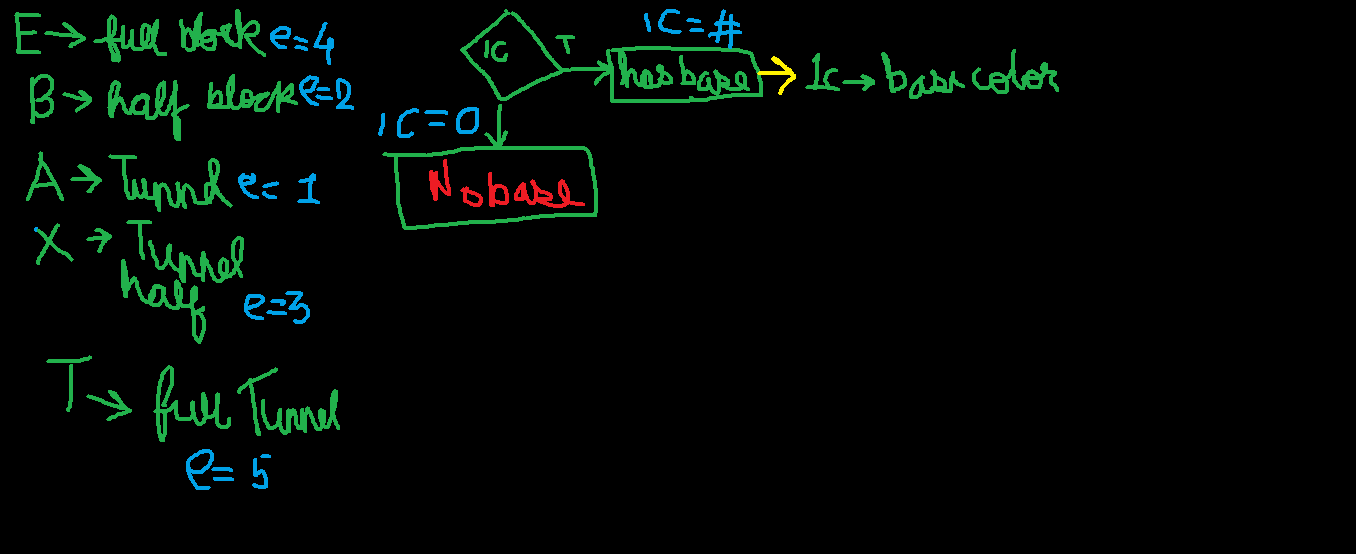 E → full block e=4
B → half block e=2
A → Tunnel e=1
X → Tunnel
half e=3
T → full Tunnel
e=5
IC T
IC=#
hasbase → 1c → base color
IC=0
Nobase